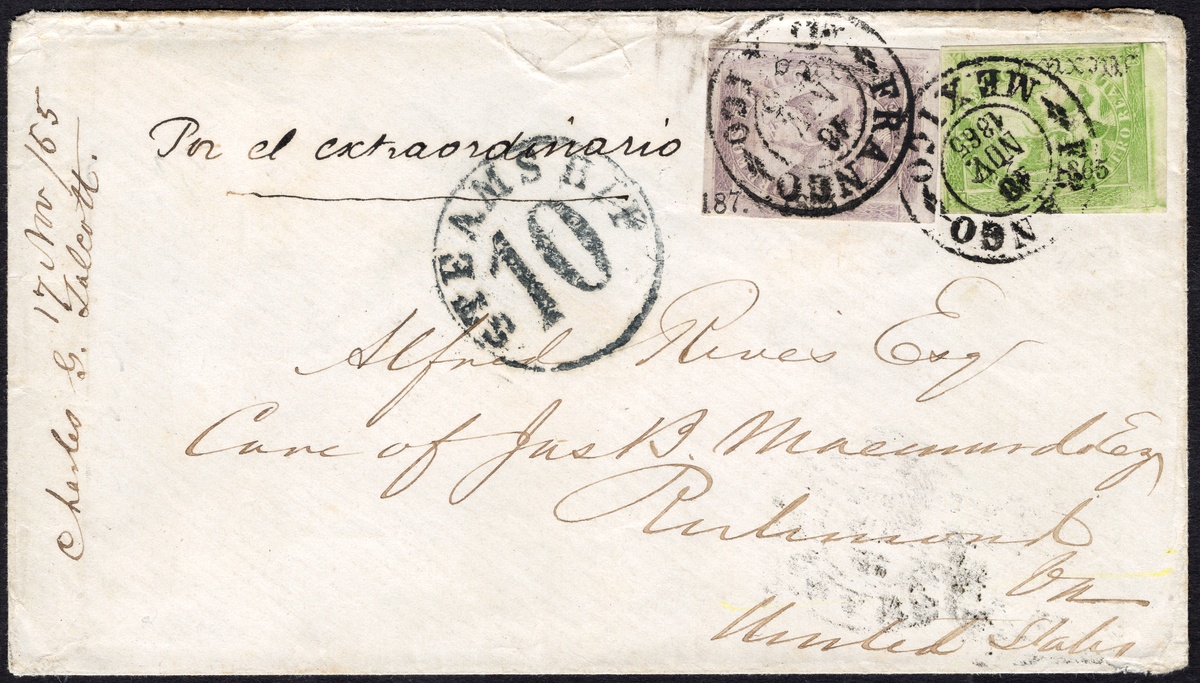 Charles G. Talcott.
17 Nov /65
Por el extraordinario
STEAMSHIP
10
FRANCO
MEXICO
187.
FRANCO
MEXICO
10 NOV
1865
Alfred Rives Esq
Care of Jas B. Macmurdo Esq
Richmond
Va
United States